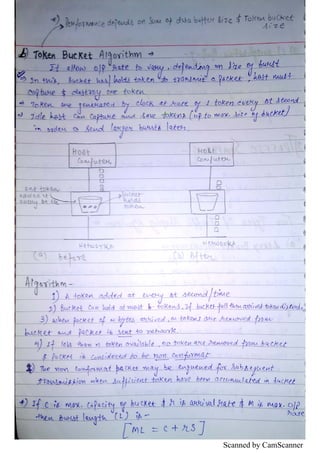 *) Performance depends on sum of data buffer size & Token bucket
size
b) Token Bucket Algorithm →
It allow o/p rate to vary, depending on size of burst
→ In this, bucket has/holds token to transmit a packet, host must
capture & destroy one token
→ Token are generated by clock at rate of 1 token every Δt second
→ Idle host can capture and save tokens (up to max. size of bucket)
in order to send larger bursts later.
HOST
Computer
HOST
Computer
one token
added at
every Δt
bucket
holds
token
NETWORK
NETWORK
(a) before
(b) After
Algorithm -
1) A token added at every Δt second/time
2) Bucket can hold at most b tokens, If bucket full then arrived token
3) when packet of n bytes arrived, n tokens are removed from
bucket and packet is sent to network.
4) If less than n token available, no token are removed from bucket
& packet is considered to be non conformat
5) The non conformat packet may be enqueued for subsequent
transmission when sufficient token have been accumulated in bucket
*) If C is max. capacity of bucket & r is arrival rate & M is max. o/p
rate
then burst length (L) is -
[ML = C + rS]
Scanned by CamScanner